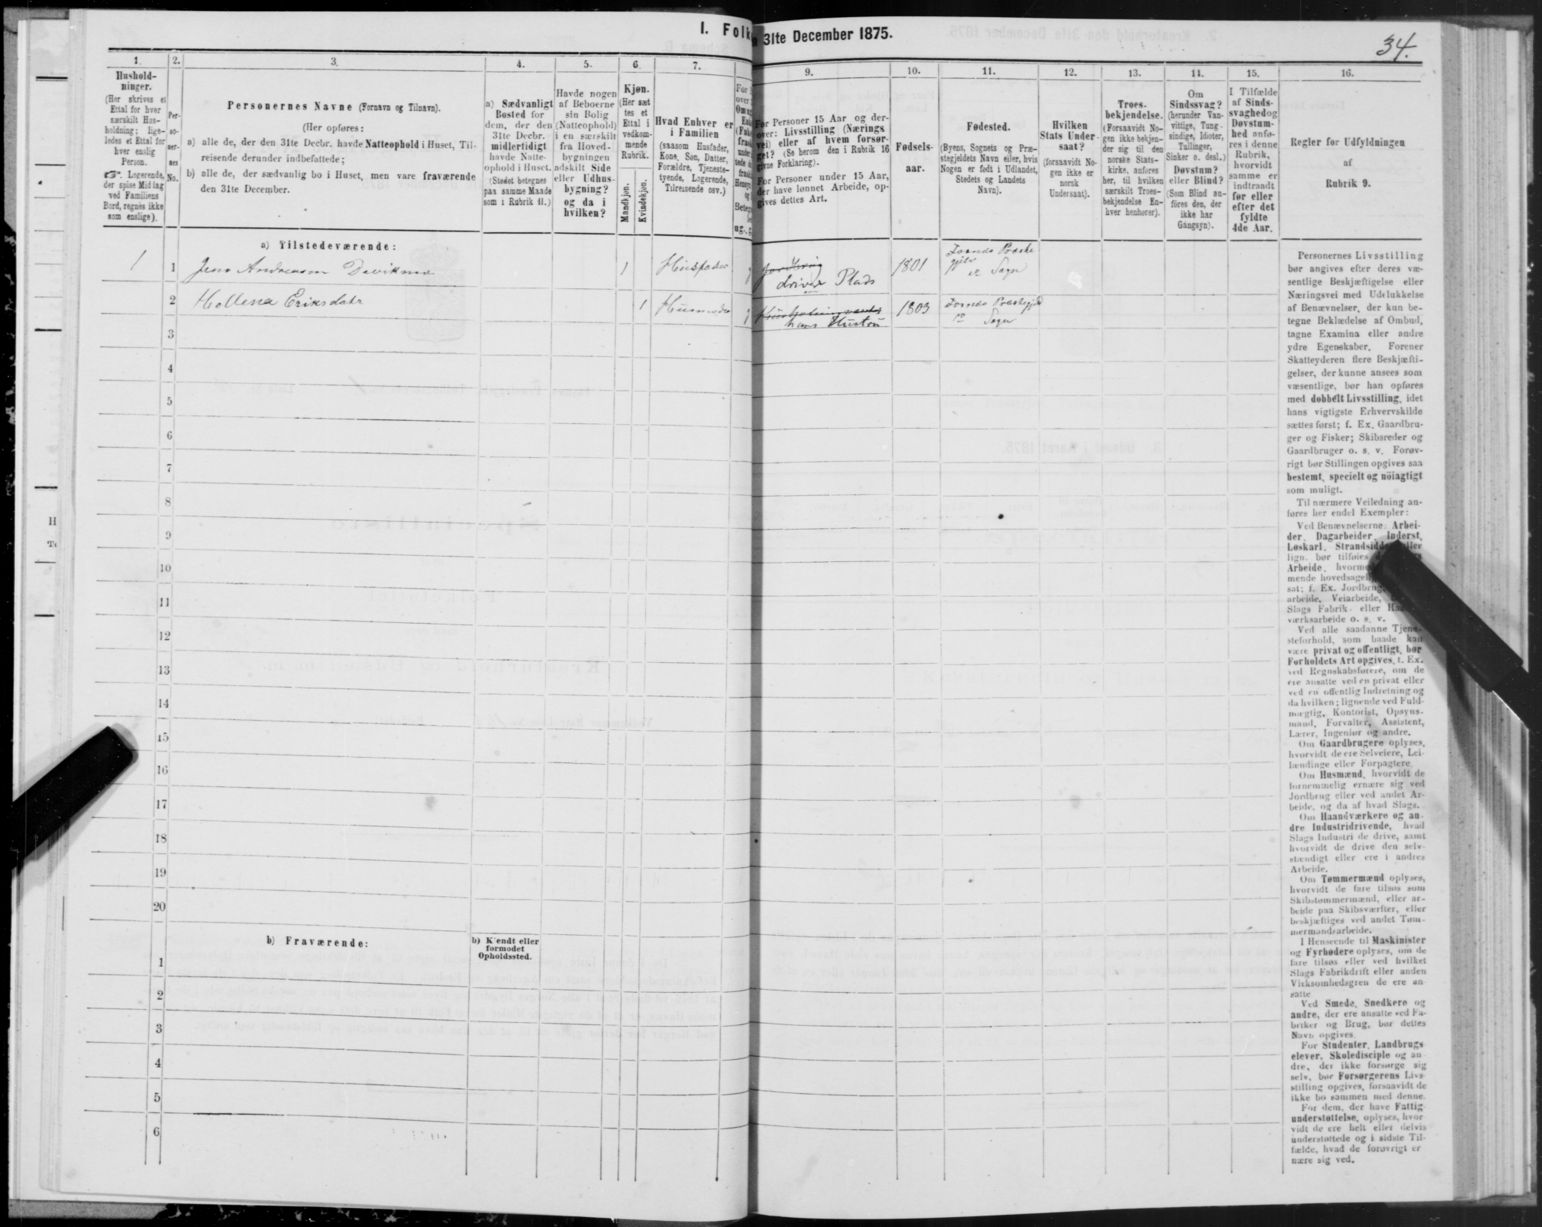 I. Folk
31te December 1875.
34.
1.
Hushold-
ninger.
(Her skrives et
Ettal for hver
særskilt Hus-
holdning; lige-
ledes et Ettal for
hver enslig
Person.
Logerende,
der spise Middag
ved Familiens
Bord, regnes ikke
som enslige).
2.
Per-
so-
ner-
nes
No.
3.
Personernes Navne (Fornavn og Tilnavn).
(Her opføres:
a) alle de, der den 31te Decbr. havde Natteophold i Huset, Til-
reisende derunder indbefattede;
b) alle de, der sædvanlig bo i Huset, men vare fraværende
den 31te December.
4.
a) Sædvanligt
Bosted for
dem, der den
31te Decbr.
midlertidigt
havde Natte-
ophold i Huset.
(Stedet betegnes
paa samme Maade
som i Rubrik 11.)
5.
Havde nogen
af Beboerne
sin Bolig
(Natteophold)
i en særskilt
fra Hoved-
bygningen
adskilt Side
eller Udhus-
bygning?
og da i
hvilken?
6.
Kjøn.
(Her sæt
tes et
Ettal i
vedkom-
mende
Rubrik.
Mandkjøn.
Kvindekjøn.
7.
Hvad Enhver er
i Familien
(saasom Husfader,
Kone, Søn, Datter,
Forældre, Tjeneste-
tyende, Logerende,
Tilreisende osv.)
9.
For Personer 15 Aar og der-
over: Livsstilling (Nærings
vei) eller af hvem forsør-
get? (Se herom den i Rubrik 16
givne Forklaring).
For Personer under 15 Aar,
der have lønnet Arbeide, op-
gives dettes Art.
10.
Fødsels-
aar.
11.
Fødested.
(Byens, Sognets og Præ-
stegjeldets Navn eller, hvis
Nogen er født i Udlandet,
Stedets og Landets
Navn).
12.
Hvilken
Stats Under-
saat?
(forsaavidt No-
gen ikke er
norsk
Undersaat).
13.
Troes-
bekjendelse.
(Forsaavidt No-
gen ikke bekjen-
der sig til den
norske Stats-
kirke, anføres
her, til hvilken
særskilt Troes-
bekjendelse En-
hver henhører).
14.
Om
Sindssvag?
(herunder Van-
vittige, Tung-
sindige, Idioter,
Tullinger,
Sinker o. desl.)
Døvstum?
eller Blind?
(Som Blind an-
føres den, der
ikke har
Gangsyn).
15.
I Tilfælde
af Sinds-
svaghed og
Døvstum-
hed anfø-
res i denne
Rubrik,
hvorvidt
samme er
indtraadt
før eller
efter det
fyldte
4de Aar.
16.
Regler for Udfyldningen
af
Rubrik 9.
a) Tilstedeværende:
1 1 Jens Andreassen 1 Husfader driver Plads 1801
2 Eriksdatr 1 Husmoder hans Hustru 1803
3
4
5
6
7
8
9
10
11
12
13
14
15
16
17
18
19
20
b) Fraværende:
b) Kjendt eller
formodet
Opholdssted.
1
2
3
4
5
6
Personernes Livsstilling
bør angives efter deres væ-
sentlige Beskjæftigelse eller
Næringsvei med Udelukkelse
af Benævnelser, der kun be-
tegne Beklædelse af Ombud,
tagne Examina eller andre
ydre Egenskaber. Forener
Skatteyderen flere Beskjæfti-
gelser, der kunne ansees som
væsentlige, bør han opføres
med dobbelt Livsstilling, idet
hans vigtigste Erhvervskilde
sættes først; f. Ex. Gaardbru-
ger og Fisker; Skibsreder og
Gaardbruger o. s. v. Forøv-
rigt bør Stillingen opgives saa
bestemt, specielt og nøiagtigt
som muligt.
Til nærmere Veiledning an-
føres her endel Exempler:
Ved Benævnelserne: Arbei-
der, Dagarbeider, Inderst,
Løskarl, Strandsidder eller
lign. bør tilføies
Arbeide, hvormed
mende hovedsagelig
sat; f. Ex. Jordbrug
arbeide, Veiarbeide,
Slags Fabrik- eller
værksarbeide o. s. v.
Ved alle saadanne Tjene-
steforhold, som baade kan
være privat og offentligt, bør
Forholdets Art opgives, f. Ex.
ved Regnskabsførere, om de
ere ansatte ved en privat eller
ved en offentlig Indretning og
da hvilken; lignende ved Fuld-
mægtig, Kontorist, Opsyns-
mand, Forvalter, Assistent,
Lærer, Ingeniør og andre.
Om Gaardbrugere oplyses,
hvorvidt de ere Selveiere, Lei-
lændinge eller Forpagtere.
Om Husmænd, hvorvidt de
fornemmelig ernære sig ved
Jordbrug eller ved andet Ar-
beide, og da af hvad Slags.
Om Haandværkere og an-
dre Industridrivende, hvad
Slags Industri de drive, samt
hvorvidt de drive den selv-
stændigt eller ere i andres
Arbeide.
Om Tømmermænd oplyses,
hvorvidt de fare tilsøs som
Skibstømmermænd, eller ar-
beide paa Skibsværfter, eller
beskjæftiges ved andet Tøm-
mermandsarbeide.
I Henseende til Maskinister
og Fyrbødere oplyses, om de
fare tilsøs eller ved hvilket
Slags Fabrikdrift eller anden
Virksomhedsgren de ere an-
satte.
Ved Smede, Snedkere og
andre, der ere ansatte ved Fa-
briker og Brug, bør dettes
Navn opgives.
For Studenter, Landbrugs
elever, Skoledisciple og an-
dre, der ikke forsørge sig
selv, bør Forsørgerens Livs-
stilling opgives, forsaavidt de
ikke bo sammen med denne.
For dem, der have Fattig-
understøttelse, oplyses, hvor
vidt de ere helt eller delvis
understøttede og i sidste Til-
fælde, hvad de forøvrigt er
nære sig ved.